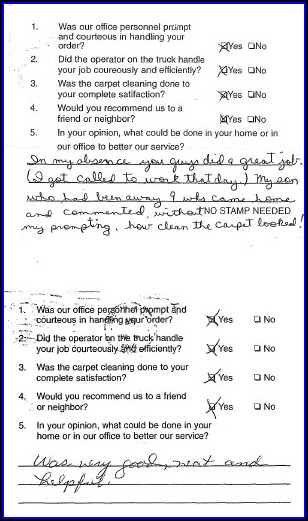 1. Was our office personnel prompt
and courteous in handling your
order? Yes No
2. Did the operator on the truck handle
your job coureously and efficiently? Yes No
3. Was the carpet cleaning done to
your complete satifaction? Yes No
4. Would you recommend us to a
friend or neighbor? Yes No
5. In your opinion, what could be done in your home or in
our office to better our service?
In my absence you guys did a great job.
(I got called to work that day.) My son
who had been away 9 wks came home
and commented, without NO STAMP NEEDED
my prompting, how clean the carpet looked!
1. Was our office personnel prompt and
courteous in handling your order? Yes No
2. Did the operator on the truck handle
your job courteously and efficiently? Yes No
3. Was the carpet cleaning done to your
complete satisfaction? Yes No
4. Would you recommend us to a friend
or neighbor? Yes No
5. In your opinion, what could be done in your
home or in our office to better our service?
Was very good, neat and
helpful.